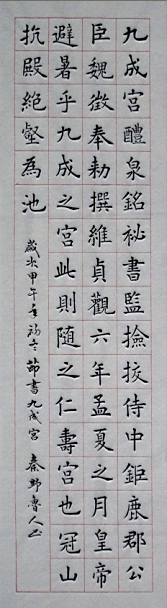 九成宮醴泉銘祕書監撿挍侍中鉅鹿郡公
臣魏徵奉勅撰維貞觀六年孟夏之月皇帝
避暑乎九成之宮此則随之仁壽宮也冠山
抗殿絕壑為池
歲次甲午年初冬節書九成宮 秦野魯人书